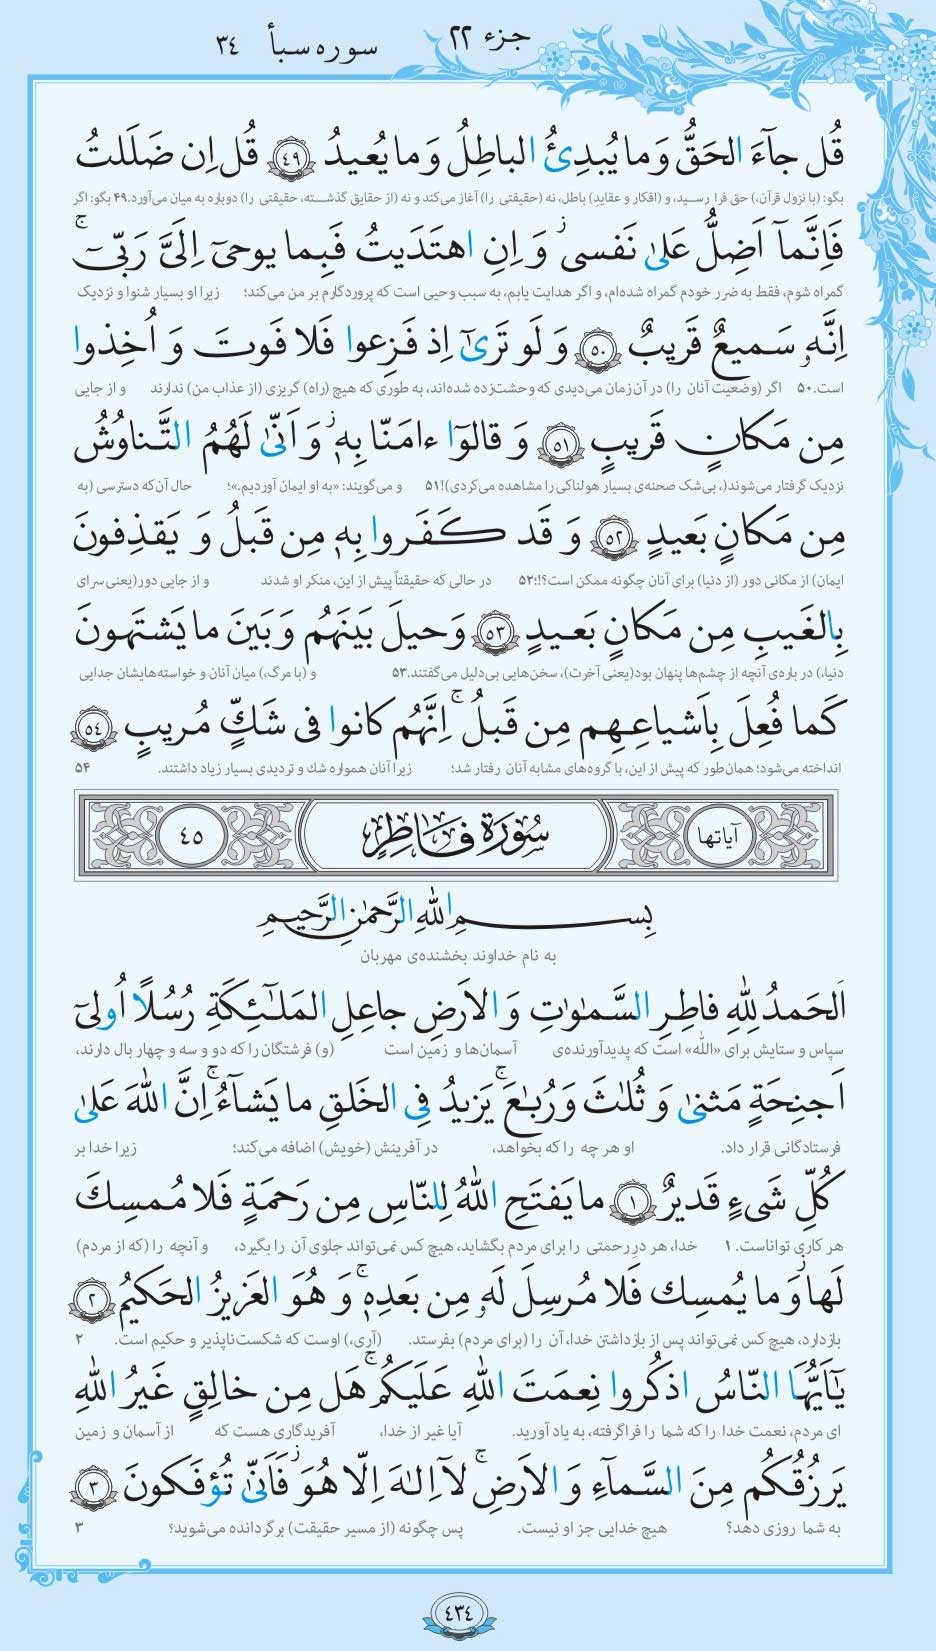 جزء ٢٢
سوره سبأ ٣٤
قُل جآءَ الحَقُّ وَ ما يُبدِئُ الباطِلُ وَ ما يُعيدُ ٤٩ قُل اِن ضَلَلتُ
بگو: (با نزول قرآن،) حق فرا رسید، و (افکار و عقاید) باطل، نه (حقیقتی را) آغاز می‌کند و نه (از حقایق گذشــته، حقیقتی را) دوباره به میان می‌آورد.۴۹ بگو: اگر
فَاِنَّمآ اَضِلُّ عَلىٰ نَفسى ز وَ اِنِ اهتَدَيتُ فَبِما يوحىٓ اِلَىَّ رَبّىٓ ج
گمراه شوم، فقط به ضرر خودم گمراه شده‌ام، و اگر هدایت یابم، به سبب وحیی است که پروردگارم بر من می‌کند؛ زیرا او بسیار شنوا و نزدیک
اِنَّهٗ سَميعٌ قَريبٌ ٥٠ وَ لَو تَرىٰٓ اِذ فَزِعوا فَلا فَوتَ وَ اُخِذوا
است.۵۰ اگر (وضعیت آنان را) در آن زمان می‌دیدی که وحشت‌زده شده‌اند، به طوری که هیچ (راه) گریزی (از عذاب من) ندارند و از جایی
مِن مَكانٍ قَريبٍ ٥١ وَ قالوٓا ءامَنّا بِهٖ ز وَ اَنّىٰ لَهُمُ التَّناوُشُ
نزدیک گرفتار می‌شوند(، بی‌شک صحنه‌ی بسیار هولناکی را مشاهده می‌کردی)!۵۱ و می‌گویند: «به او ایمان آوردیم.»؛ حال آن‌که دسترسی (به
مِن مَكانٍ بَعيدٍ ٥٢ وَ قَد كَفَروا بِهٖ مِن قَبلُ وَ يَقذِفونَ
ایمان) از مکانی دور (از دنیا) برای آنان چگونه ممکن است؟!؛۵۲ در حالی که حقیقتاً پیش از این، منکر او شدند و از جایی دور(یعنی سرای
بِالغَيبِ مِن مَكانٍ بَعيدٍ ٥٣ وَ حيلَ بَينَهُم وَ بَينَ ما يَشتَهونَ
دنیا،) در باره‌ی آنچه از چشم‌ها پنهان بود(یعنی آخرت)، سخن‌هایی بی‌دلیل می‌گفتند.۵۳ و (با مرگ،) میان آنان و خواسته‌هایشان جدایی
كَما فُعِلَ بِاَشياعِهِم مِن قَبلُ ج اِنَّهُم كانوا فى شَكٍّ مُريبٍ ٥٤
انداخته می‌شود؛ همان‌طور که پیش از این، با گروه‌های مشابه آنان رفتار شد؛ زیرا آنان همواره شك و تردیدی بسیار زیاد داشتند. ۵۴
آياتها سُورَةُ فَاطِرٍ ٤٥
بِسمِ اللّٰهِ الرَّحمٰنِ الرَّحيمِ
به نام خداوند بخشنده‌ی مهربان
اَلحَمدُ لِلّٰهِ فاطِرِ السَّمٰوٰتِ وَ الاَرضِ جاعِلِ المَلٰٓئِكَةِ رُسُلًا اُولىٓ
سپاس و ستایش برای «اللّٰه» است که پدیدآورنده‌ی آسمان‌ها و زمین است (و) فرشتگان را که دو و سه و چهار بال دارند،
اَجنِحَةٍ مَثنىٰ وَ ثُلٰثَ وَ رُبٰعَ ج يَزيدُ فِى الخَلقِ ما يَشآءُ ج اِنَّ اللّٰهَ عَلىٰ
فرستادگانی قرار داد. او هر چه را که بخواهد، در آفرینش (خویش) اضافه می‌کند؛ زیرا خدا بر
كُلِّ شَىءٍ قَديرٌ ١ ما يَفتَحِ اللّٰهُ لِلنّاسِ مِن رَحمَةٍ فَلا مُمسِكَ
هر کاری تواناست. ۱ خدا، هر درِ رحمتی را برای مردم بگشاید، هیچ کس نمی‌تواند جلوی آن را بگیرد، و آنچه را (که از مردم)
لَها ز وَ ما يُمسِك فَلا مُرسِلَ لَهٗ مِن بَعدِهٖ ج وَ هُوَ العَزيزُ الحَكيمُ ٢
بازدارد، هیچ کس نمی‌تواند پس از بازداشتن خدا، آن را (برای مردم) بفرستد. (آری،) اوست که شکست‌ناپذیر و حکیم است. ۲
يٰٓاَيُّهَا النّاسُ اذكُروا نِعمَتَ اللّٰهِ عَلَيكُم ج هَل مِن خالِقٍ غَيرُ اللّٰهِ
ای مردم، نعمت خدا را که شما را فراگرفته، به یاد آورید. آیا غیر از خدا، آفریدگاری هست که از آسمان و زمین
يَرزُقُكُم مِنَ السَّمآءِ وَ الاَرضِ ج لآ اِلٰهَ اِلّا هُوَ ز فَاَنّىٰ تُؤفَكونَ ٣
به شما روزی دهد؟ هیچ خدایی جز او نیست. پس چگونه (از مسیر حقیقت) برگردانده می‌شوید؟ ۳
٤٣٤